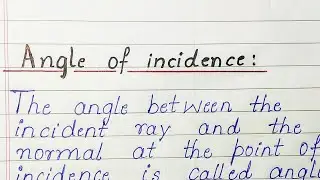 Angle of incidence:
The angle between the
incident ray and the
normal at the point of
incidence is called angle